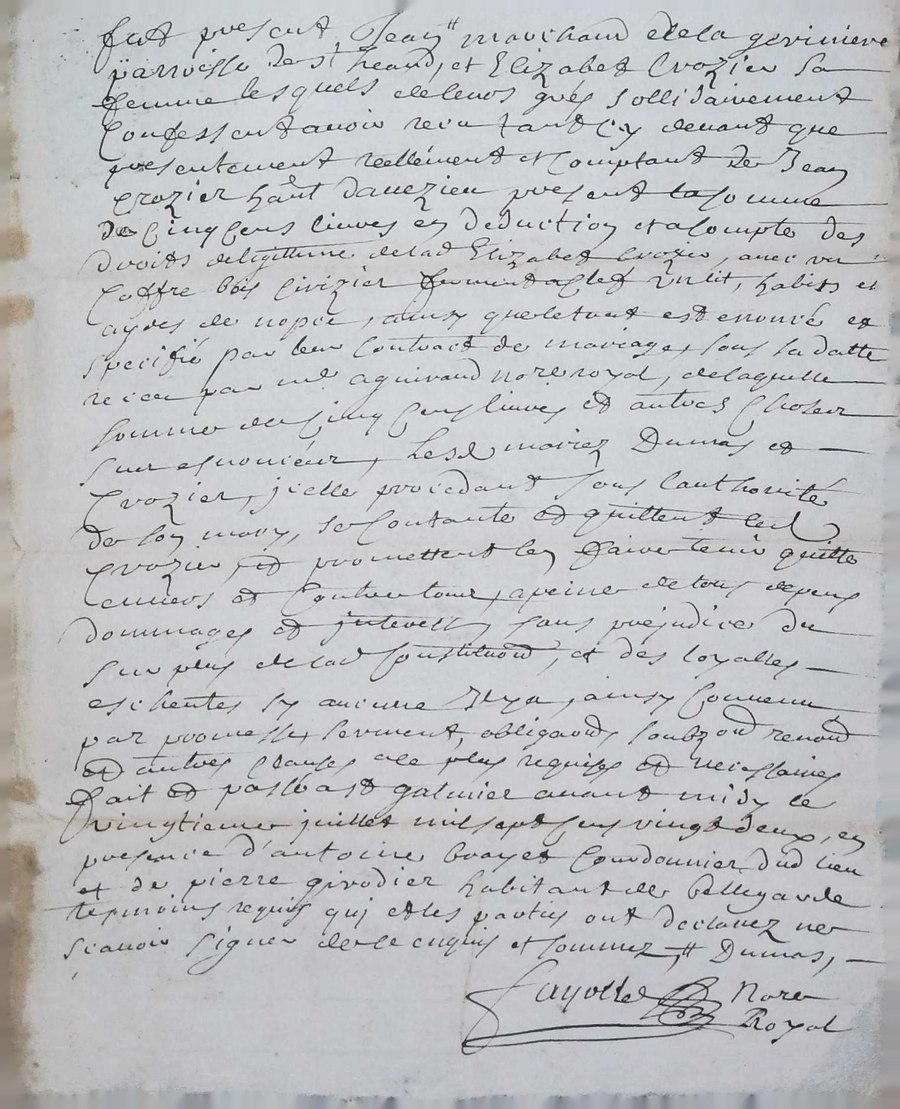 fut present Jean # marchand de la goriniere
parroisse de st heand, et Elizabet Crozier sa
femme lesquels de leurs grés sollidairement
Confessent avoir receu tant cy devant que
presentement reellement et Comptant de Jean
Crozier habt daveizieu present la somme
de Cinq Cens livres en deduction et a Compte des
droits de legittime de lad Elizabet Crozier, avec un
Coffre bois Cirizier fermant a Clef un lit, habits et
de nopce, ainsy que le tout est enoncé et
specifié par leur Contract de mariage, sous sa datte
receu par me aguiraud nore royal, de laquelle
somme de Cinq Cens livres et autres Choses
sus esnoncées, Lesd mariez Dumas et
Crozier, icelle procedant sous l'authorité
de son mary, se Contante et quittent led
Crozier, et promettent len faire tenir quitte
envers et Contre tous, a peine de tous depens
dommages et interests, sans prejudice du
surplus de lad Constitution, et des loyalles
escheutes sy aucune Il y a, ainsy Convenu
par promesse, serment, obligaons soubzons renons
et autres Clauses a ce plus requises et necessaires
fait et passé a st galmier avant midy le
vingtieme juillet mil sept Cens vingt deux, en
presence d'antoine Courdonnier dud lieu
et de pierre girodier habitant de bellegarde
tesmoins requis qui et les parties ont declarez ne
scavoir signer de ce enquis et sommez, # Dumas,
fayolle Nore
Royal